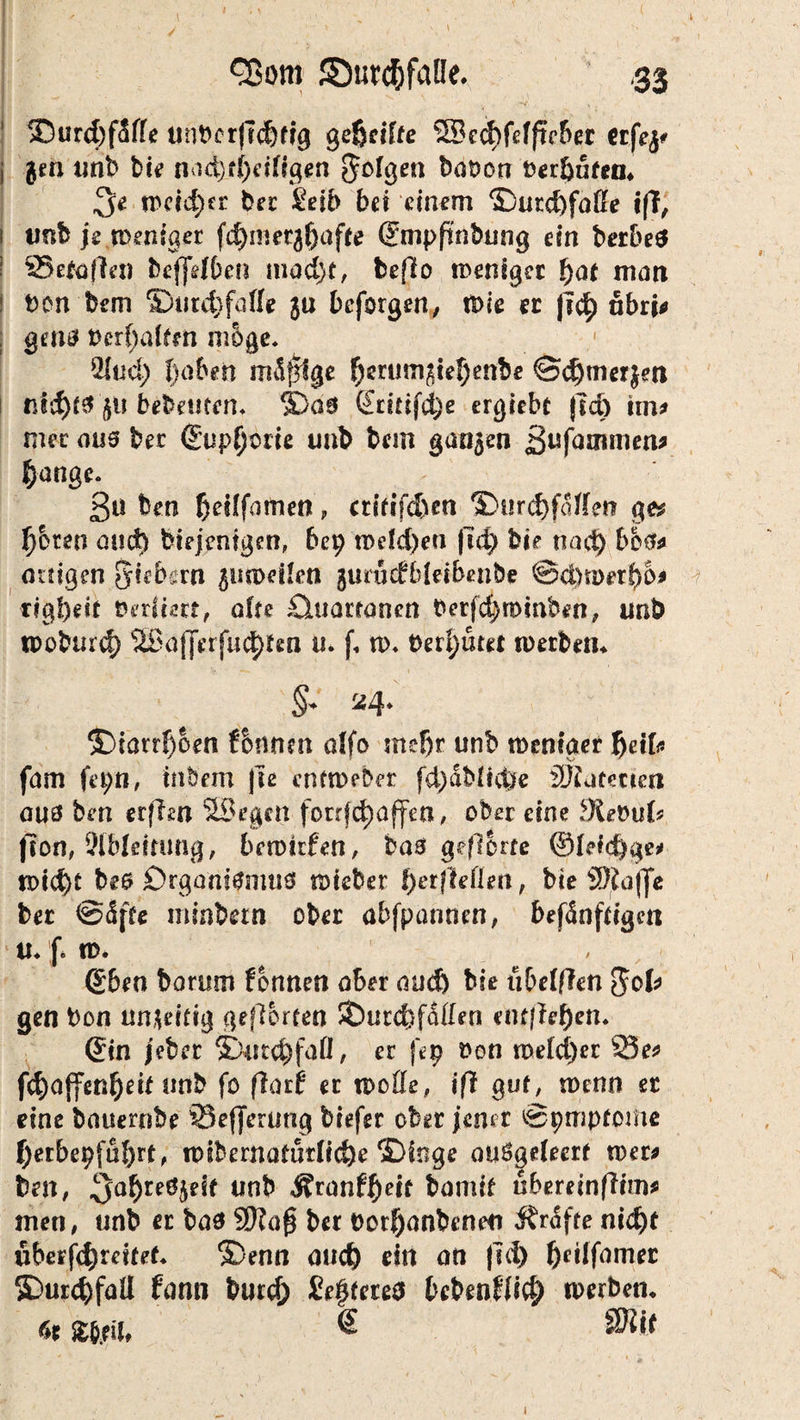 Vom Durchfalle. 33
Durchfälle unvorsichtig geheilte Wechselfieber ersez⸗
zen und die nachtheiligen Folgen davon verhüten.
Je weicher der Leib bei einem Durchfalle ist,
und je weniger schmerzhafte Empfindung ein derbes
Betasten desselben macht, desto weniger hat man
von dem Durchfalle zu besorgen, wie er sich übri⸗
gens verhalten möge.
Auch haben mäßige herumziehende Schmerzen
nichts zu bedeuten. Das Critische ergiebt sich im⸗
mer aus der Euphorie und dem ganzen Zusammen⸗
hange.
Zu den heilsamen, critischen Durchfällen ge⸗
hören auch diejenigen, bey welchen sich die nach bös⸗
artigen Fiebern zuweilen zurückbleibende Schwerhö⸗
righeit verliert, alte Quartanen verschwinden, und
wodurch Wassersuchten u. s. w. verhütet werden.
§. 24.
Diarrhöen können also mehr und weniger heil⸗
sam seyn, indem sie entweder schädliche Materien
aus den ersten Wegen fortschaffen, oder eine Revul⸗
sion, Ableitung, bewirken, das gestörte Gleichge⸗
wicht des Organismus wieder herstellen, die Masse
der Säfte mindern oder abspannen, besänftigen
u. s. w.
Eben darum können aber auch die übelsten Fol⸗
gen von unzeitig gestörten Durchfällen entstehen.
Ein jeder Durchfall, er sey von welcher Be⸗
schaffenheit und so stark er wolle, ist gut, wenn er
eine dauernde Besserung dieser oder jener Symptome
herbeyführt, widernatürliche Dinge ausgeleert wer⸗
den, Jahreszeit und Krankheit damit übereinstim⸗
men, und er das Maß der vorhandenen Kräfte nicht
überschreitet. Denn auch ein an sich heilsamer
Durchfall kann durch Letzteres bedenklich werden.
6r Theil. C Mit